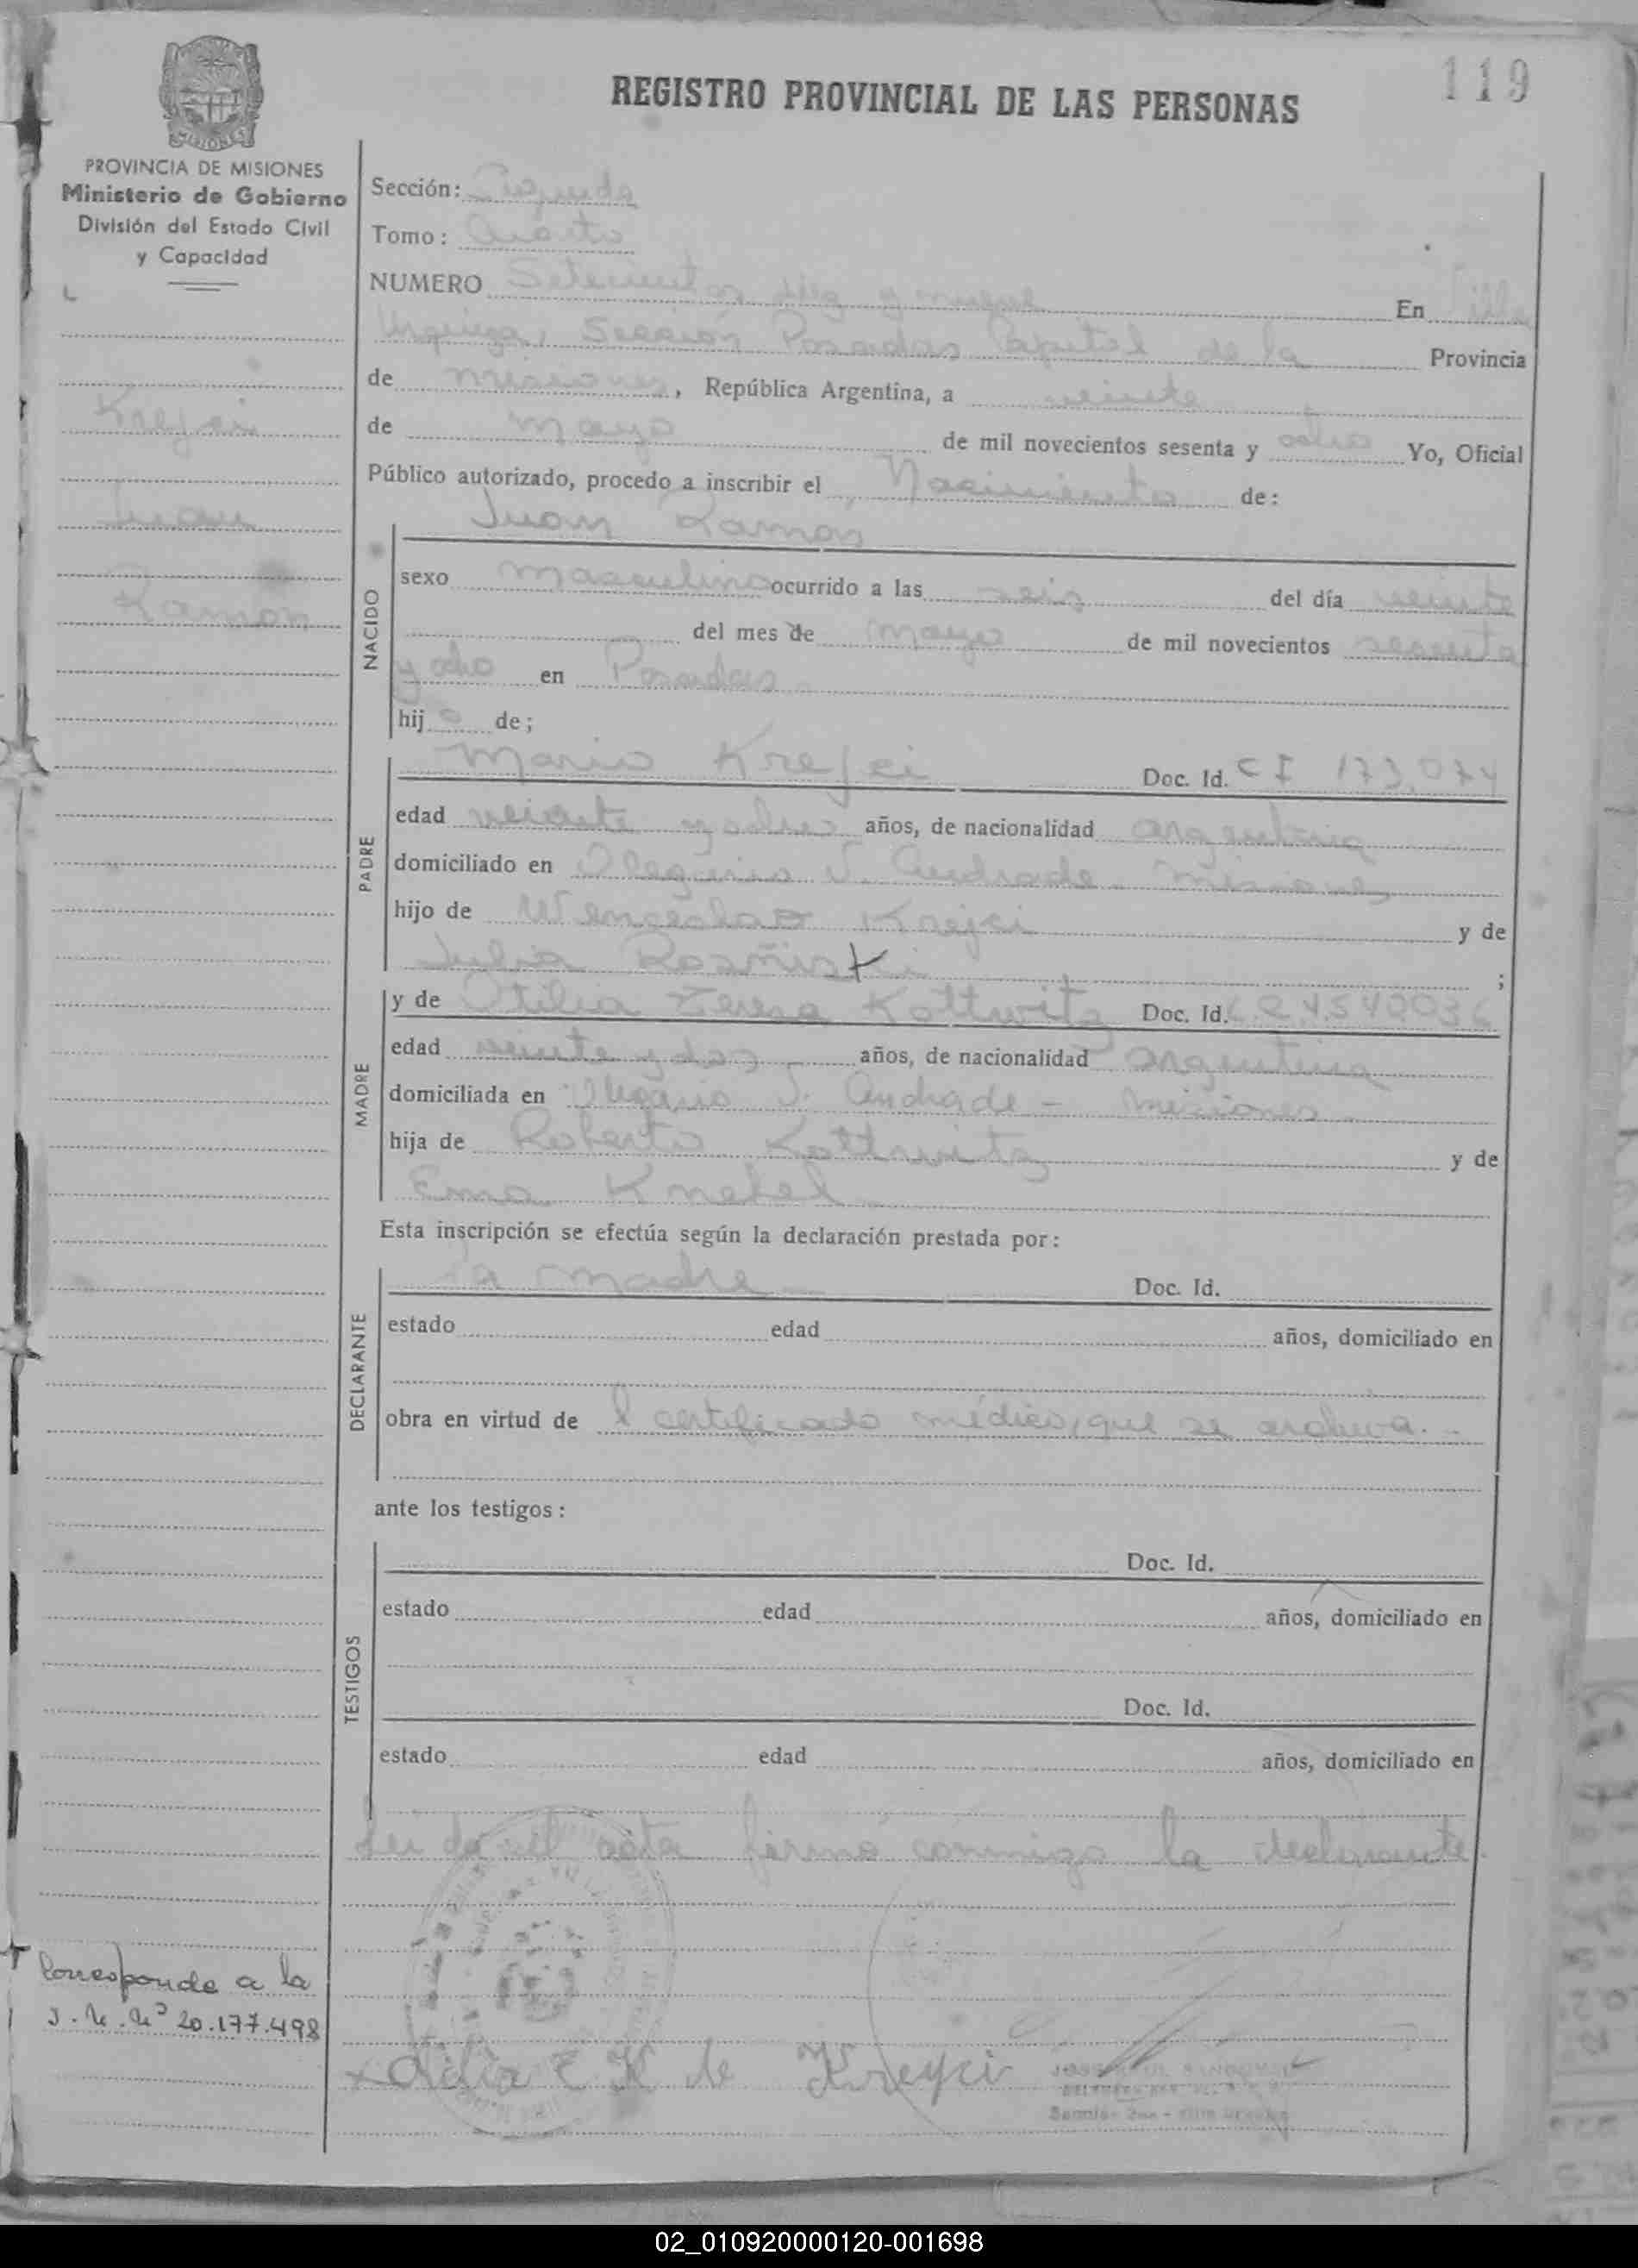 119
REGISTRO PROVINCIAL DE LAS PERSONAS
MISIONES
PROVINCIA DE MISIONES
Ministerio de Gobierno
División del Estado Civil
y Capacidad
Krejci
Juan
Ramon
Corresponde a la
20.177.498
Sección: Segunda
Tomo: Cuarto
NUMERO Setecientos diez y nueve En Villa
Urquiza, Sección Posadas Capital de la Provincia
de Misiones, República Argentina, a veinte
de mayo de mil novecientos sesenta y ocho Yo, Oficial
Público autorizado, procedo a inscribir el Nacimiento de:
Juan Ramon
NACIDO
sexo masculino ocurrido a las seis del día veinte
del mes de mayo de mil novecientos sesenta
y ocho en Posadas
hijo de;
PADRE
Mario Krejci Doc. Id. CI 173.074
edad veinte y ocho años, de nacionalidad argentina
domiciliado en Olegario V. Andrade - Misiones
hijo de Wenceslao Krejci y de
Julia ;
MADRE
y de Otilia Teresa Kottwitz Doc. Id. L.C. 4.540036
edad veinte y dos años, de nacionalidad argentina
domiciliada en Olegario V. Andrade - Misiones
hija de Roberto Kottwitz y de
Ema Knebel
Esta inscripción se efectúa según la declaración prestada por:
DECLARANTE
la madre Doc. Id.
estado edad años, domiciliado en
obra en virtud de l certificado médico, que se archiva. -
ante los testigos:
TESTIGOS
Doc. Id.
estado edad años, domiciliado en
Doc. Id.
estado edad años, domiciliado en
Leida el acta firma conmigo la declarante.
x Otilia T K de Krejci
02_010920000120-001698